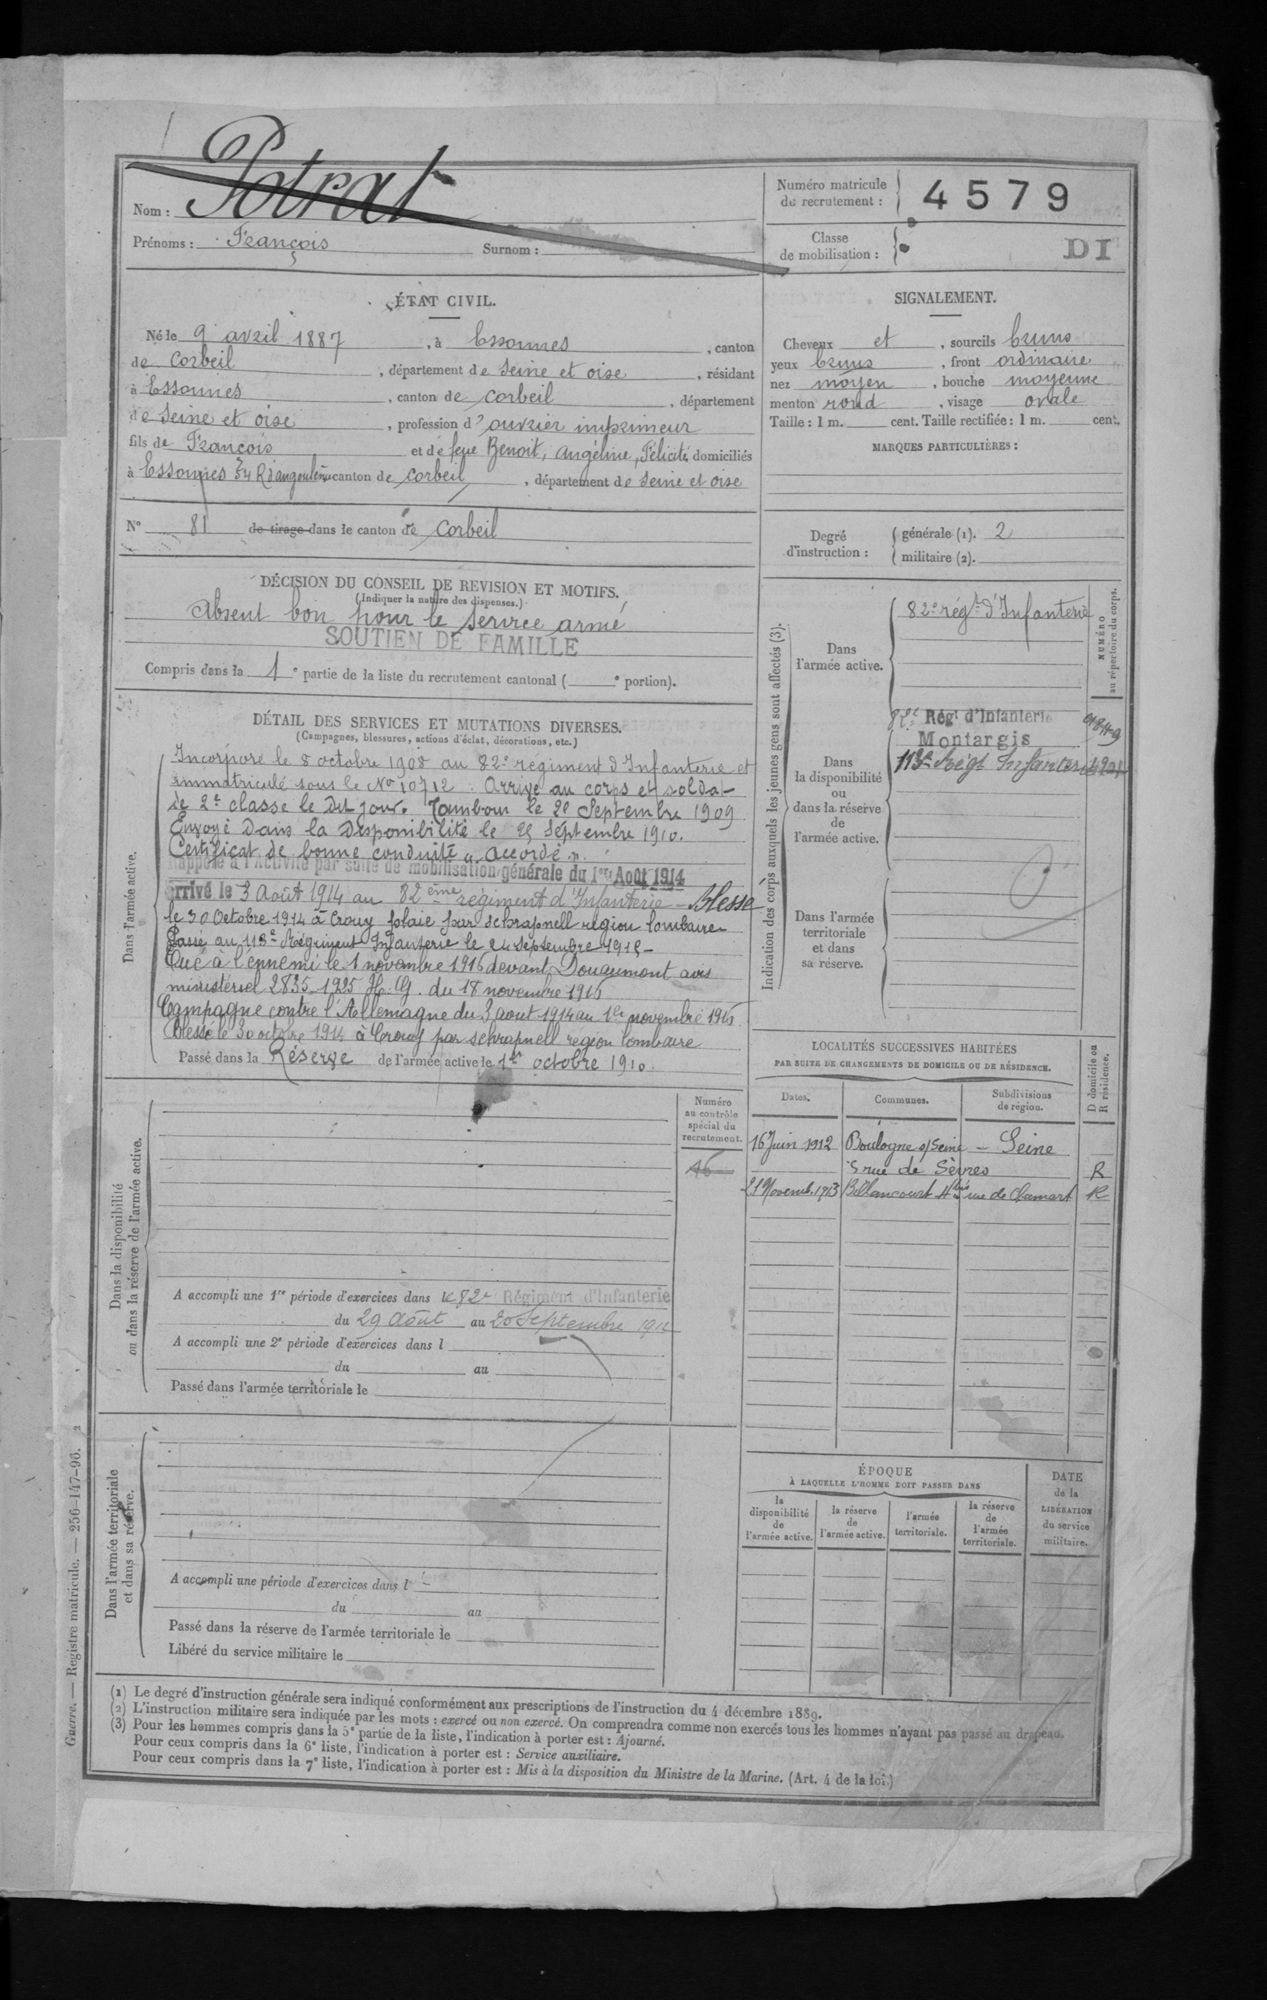 Nom : Potrat
Prénoms : François Surnom :
Numéro matricule du recrutement : 4579
Classe de mobilisation :
DI
ÉTAT CIVIL.
Né le 9 avril 1887, à Essonnes, canton
de Corbeil, département de Seine et oise, résidant
à Essonnes, canton de Corbeil, département
de Seine et oise, profession d'ouvrier imprimeur
fils de François et de feue Benoit, Angéline, Félicité domiciliés
à Essonnes 54 R d'angoulême canton de Corbeil, département de Seine et oise
N° 81 de tirage dans le canton de Corbeil
SIGNALEMENT.
Cheveux et, sourcils bruns
yeux bruns, front ordinaire
nez moyen, bouche moyenne
menton rond, visage ovale
Taille : 1 m. cent. Taille rectifiée : 1 m. cent.
MARQUES PARTICULIÈRES :
Degré d'instruction : générale (1). 2
militaire (2).
DÉCISION DU CONSEIL DE REVISION ET MOTIFS.
(Indiquer la nature des dispenses.)
Absent bon pour le service armé
SOUTIEN DE FAMILLE
Compris dans la 1e partie de la liste du recrutement cantonal ( e portion).
DÉTAIL DES SERVICES ET MUTATIONS DIVERSES.
(Campagnes, blessures, actions d'éclat, décorations, etc.)
Dans l'armée active.
Incorporé le 8 octobre 1908 au 82e régiment d'Infanterie et
immatriculé sous le No 10712. Arrivé au corps et soldat
de 2e classe le Dit jour. Tambour le 20 Septembre 1909
Envoyé Dans la Disponibilité le 25 Septembre 1910.
Certificat de bonne conduite "accordé".
Rappelé à l'Activité par suite de mobilisation générale du 1er Août 1914
Arrivé le 3 Août 1914 au 82ème régiment d'Infanterie - Blessé
le 30 Octobre 1914 à Crouy plaie par schrapnell région lombaire
Passé au 113e Régiment Infanterie le 24 septembre 1915 -
Tué à l'ennemi le 1 novembre 1916 devant Douaumont avis
ministériel 2835-1925 H.G. du 18 novembre 1916
Campagne contre l'Allemagne du 3 aout 1914 au 1er novembre 1916
Blessé le 30 octobre 1914 à Crouy par schrapnell region lombaire
Passé dans la Réserve de l'armée active le 1er octobre 1910.
Indication des corps auxquels les jeunes gens sont affectés (3).
NUMÉRO au répertoire du corps.
Dans l'armée active.
82e régt d'Infanterie
Dans la disponibilité ou dans la réserve de l'armée active.
82e Régt d'Infanterie
Montargis
113e Régt Infanterie
Dans l'armée territoriale et dans sa réserve.
LOCALITÉS SUCCESSIVES HABITÉES
PAR SUITE DE CHANGEMENTS DE DOMICILE OU DE RÉSIDENCE.
D domicile ou R résidence.
Dates. Communes. Subdivisions de région.
16 Juin 1912 Boulogne s/Seine - Seine
5 rue de Sèvres R
21 Novemb. 1913 Billancourt 4bis rue de Clamart R
Dans la disponibilité ou dans la réserve de l'armée active.
Numéro au contrôle spécial du recrutement.
A accompli une 1re période d'exercices dans le 82e Régiment d'Infanterie
du 29 Août au 20 Septembre
A accompli une 2e période d'exercices dans l
du au
Passé dans l'armée territoriale le
Dans l'armée territoriale et dans sa réserve.
A accompli une période d'exercices dans l
du au
Passé dans la réserve de l'armée territoriale le
Libéré du service militaire le
ÉPOQUE
À LAQUELLE L'HOMME DOIT PASSER DANS
la disponibilité de l'armée active.
la réserve de l'armée active.
l'armée territoriale.
la réserve de l'armée territoriale.
DATE de la LIBÉRATION du service militaire.
(1) Le degré d'instruction générale sera indiqué conformément aux prescriptions de l'instruction du 4 décembre 1889.
(2) L'instruction militaire sera indiquée par les mots : exercé ou non exercé. On comprendra comme non exercés tous les hommes n'ayant pas passé au drapeau.
(3) Pour les hommes compris dans la 5e partie de la liste, l'indication à porter est : Ajourné.
Pour ceux compris dans la 6e liste, l'indication à porter est : Service auxiliaire.
Pour ceux compris dans la 7e liste, l'indication à porter est : Mis à la disposition du Ministre de la Marine. (Art. 4 de la loi.)
Guerre. — Registre matricule. — 256-147-96. 2